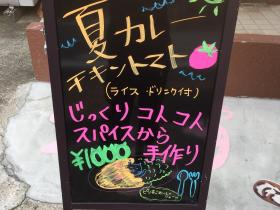 夏カレー
チキントマト
(ライス・ドリンク付)
じっくり コトコト
スパイスから
¥1000 手作り